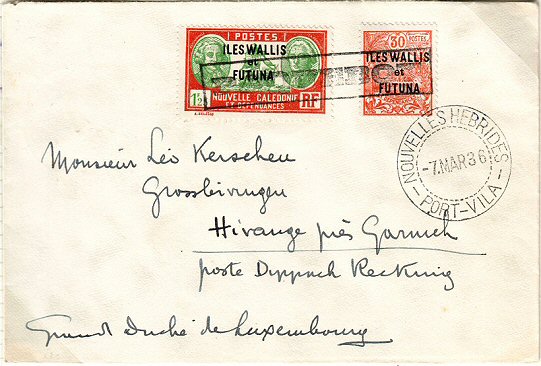 POSTES
ILES WALLIS
et
FUTUNA
1F50
NOUVELLE CALEDONIE
ET DEPENDANCES
RF
30
POSTES
ILES WALLIS
et
FUTUNA
NOUVELLES HEBRIDES
-7.MAR36
PORT-VILA
Monsieur Léo Kerschen
Grossbivingen
Hivange près Garnich
poste Dippach Reckning
Grand Duché de Luxembourg